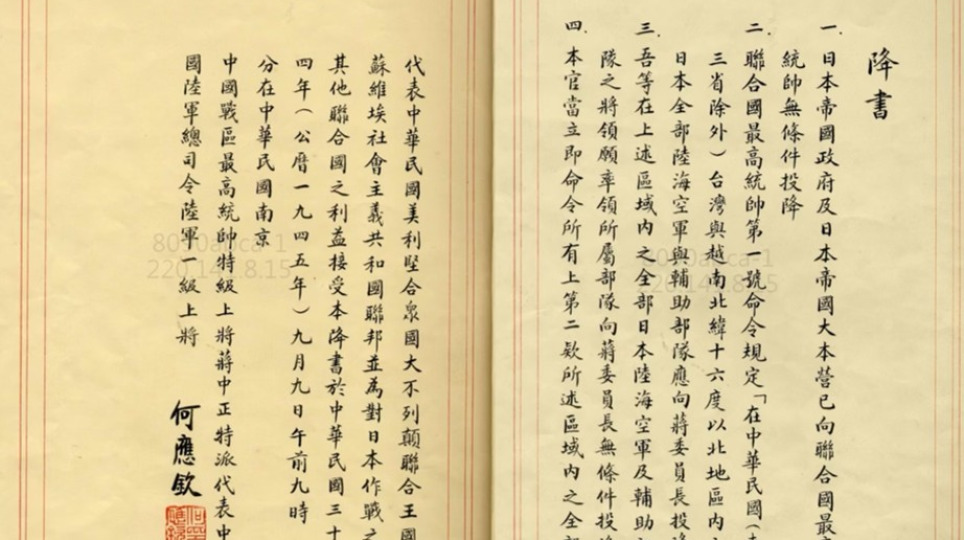 降書
一.日本帝國政府及日本帝國大本營已向聯合國最
統帥無條件投降
二.聯合國最高統帥第一號命令規定「在中華民國(
三省除外)台灣與越南北緯十六度以北地區內
日本全部陸海空軍與輔助部隊應向蔣委員長投降
三.吾等在上述區域內之全部日本陸海空軍及輔助
隊之將領願率領所屬部隊向蔣委員長無條件投降
四.本官當立即命令所有上第二款所述區域內之全部
代表中華民國美利堅合衆國大不列顛聯合王國
蘇維埃社會主義共和國聯邦並為對日本作戰之
其他聯合國之利益接受本降書於中華民國三十
四年(公曆一九四五年)九月九日午前九時
分在中華民國南京
中國戰區最高統帥特級上將蔣中正特派代表中
國陸軍總司令陸軍一級上將
何應欽